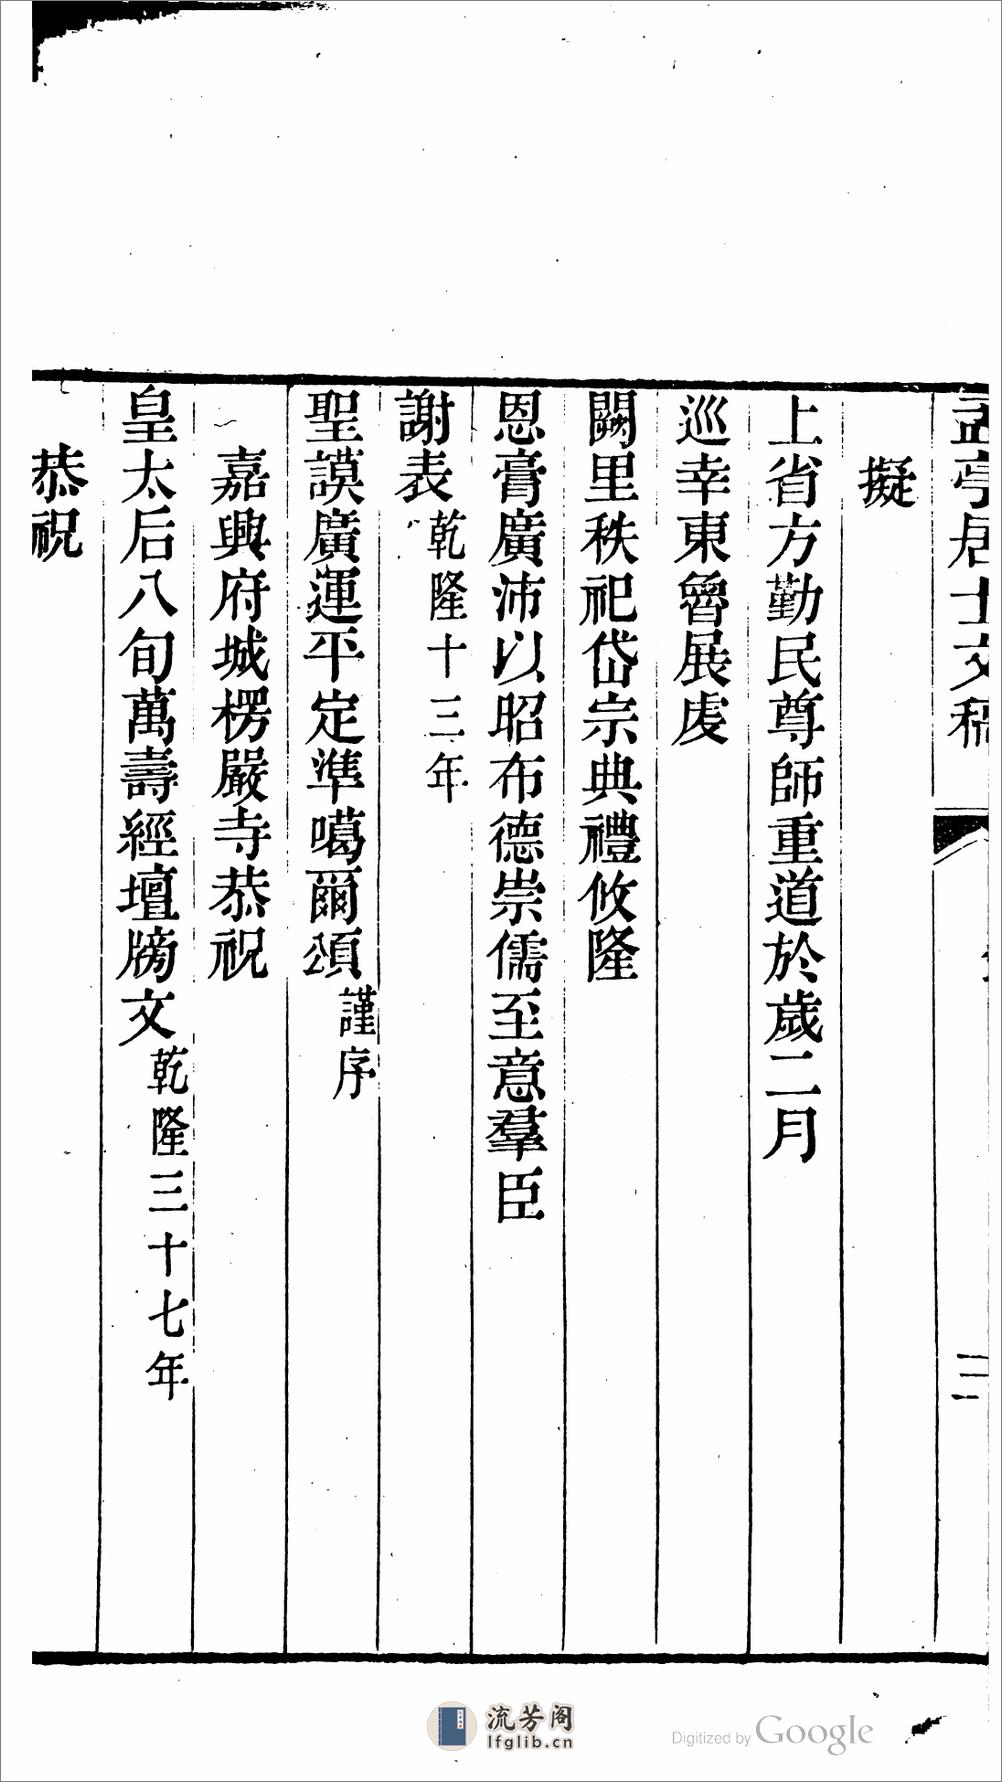 孟亭居士文稿 二
擬
上省方勤民尊師重道於歲二月
巡幸東魯展虔
闕里秩祀岱宗典禮攸隆
恩膏廣沛以昭布德崇儒至意羣臣
謝表 乾隆十三年
聖謨廣運平定準噶爾頌 謹序
嘉興府城楞嚴寺恭祝
皇太后八旬萬壽經壇牓文 乾隆三十七年
恭祝
流芳阁
lfglib.cn
Digitized by Google